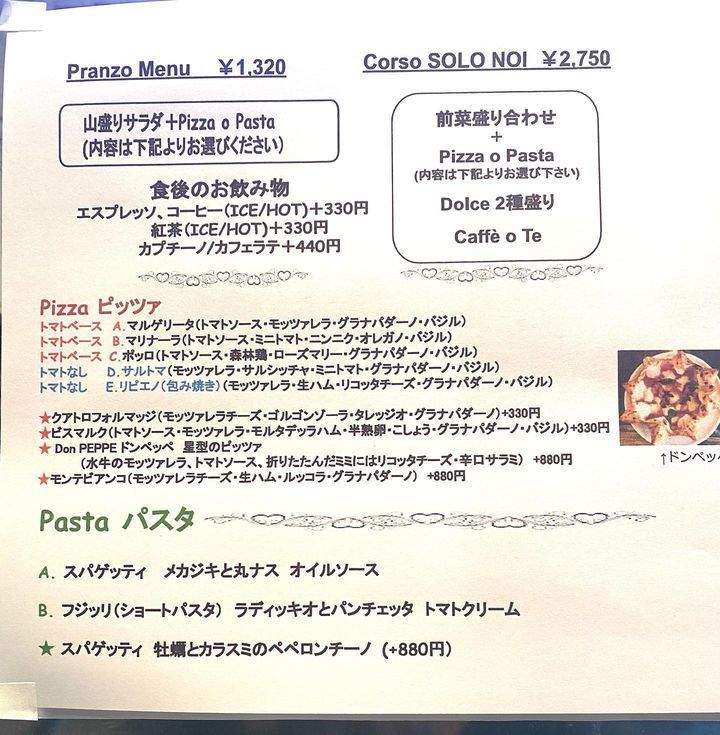 Pranzo Menu ¥1,320
山盛りサラダ＋Pizza o Pasta
(内容は下記よりお選びください)
食後のお飲み物
エスプレッソ、コーヒー(ICE/HOT)＋330円
紅茶(ICE/HOT)＋330円
カプチーノ/カフェラテ＋440円
Corso SOLO NOI ¥2,750
前菜盛り合わせ
＋
Pizza o Pasta
(内容は下記よりお選び下さい)
Dolce 2種盛り
Caffè o Te
Pizza ピッツァ
トマトベース A.マルゲリータ(トマトソース・モッツァレラ・グラナパダーノ・バジル)
トマトベース B.マリナーラ(トマトソース・ミニトマト・ニンニク・オレガノ・バジル)
トマトベース C.ポッロ(トマトソース・森林鶏・ローズマリー・グラナパダーノ・バジル)
トマトなし D.サルトマ(モッツァレラ・サルシッチャ・ミニトマト・グラナパダーノ・バジル)
トマトなし E.リピエノ(包み焼き)(モッツァレラ・生ハム・リコッタチーズ・グラナパダーノ・バジル)
★クアトロフォルマッジ(モッツァレラチーズ・ゴルゴンゾーラ・タレッジオ・グラナパダーノ)+330円
★ビスマルク(トマトソース・モッツァレラ・モルタデッラハム・半熟卵・こしょう・グラナパダーノ・バジル)+330円
★ Don PEPPE ドンペッペ 星型のピッツァ
(水牛のモッツァレラ、トマトソース、折りたたんだミミにはリコッタチーズ・辛口サラミ) +880円
★モンテビアンコ(モッツァレラチーズ・生ハム・ルッコラ・グラナパダーノ) +880円
↑ドンペッ
Pasta パスタ
A. スパゲッティ メカジキと丸ナス オイルソース
B. フジッリ(ショートパスタ) ラディッキオとパンチェッタ トマトクリーム
★ スパゲッティ 牡蠣とカラスミのペペロンチーノ (+880円)